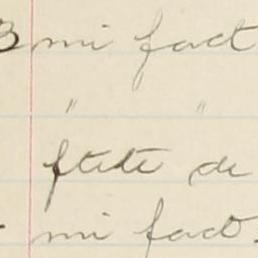 3 mi fact
" "
ftete de
mi fact.